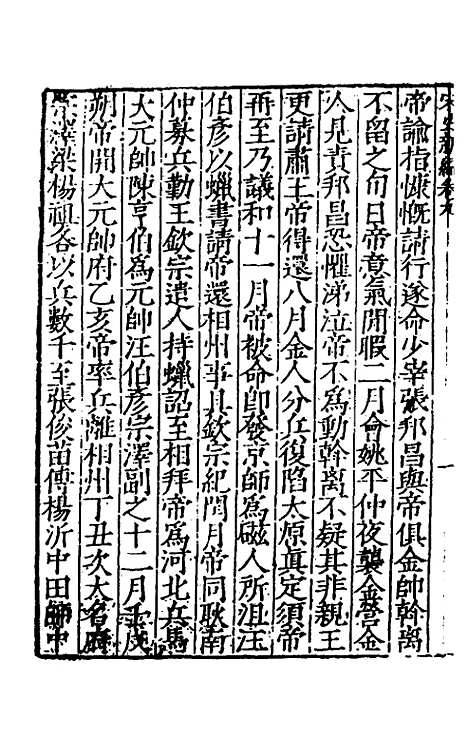 宋史新編卷九
帝諭指慷慨請行遂命少宰張邦昌與帝俱金帥斡离
不留之旬日帝意氣閒暇二月會姚平仲夜襲金營金
人見責邦昌恐懼涕泣帝不爲動斡离不疑其非親王
更請肅王帝得還八月金人分兵復陷太原眞定須帝
再至乃議和十一月帝被命即發京師爲磁人所沮汪
伯彦以蠟書請帝還相州事具欽宗紀閏月帝同耿南
仲募兵勤王欽宗遣人持蠟詔至相拜帝爲河北兵馬
大元帥陳亨伯爲元帥汪伯彦宗澤副之十二月壬戌
朔帝開大元帥府乙亥帝率兵離相州丁丑次大名府
宗澤梁楊祖各以兵數千至張俊苗傅楊沂中田師中
一